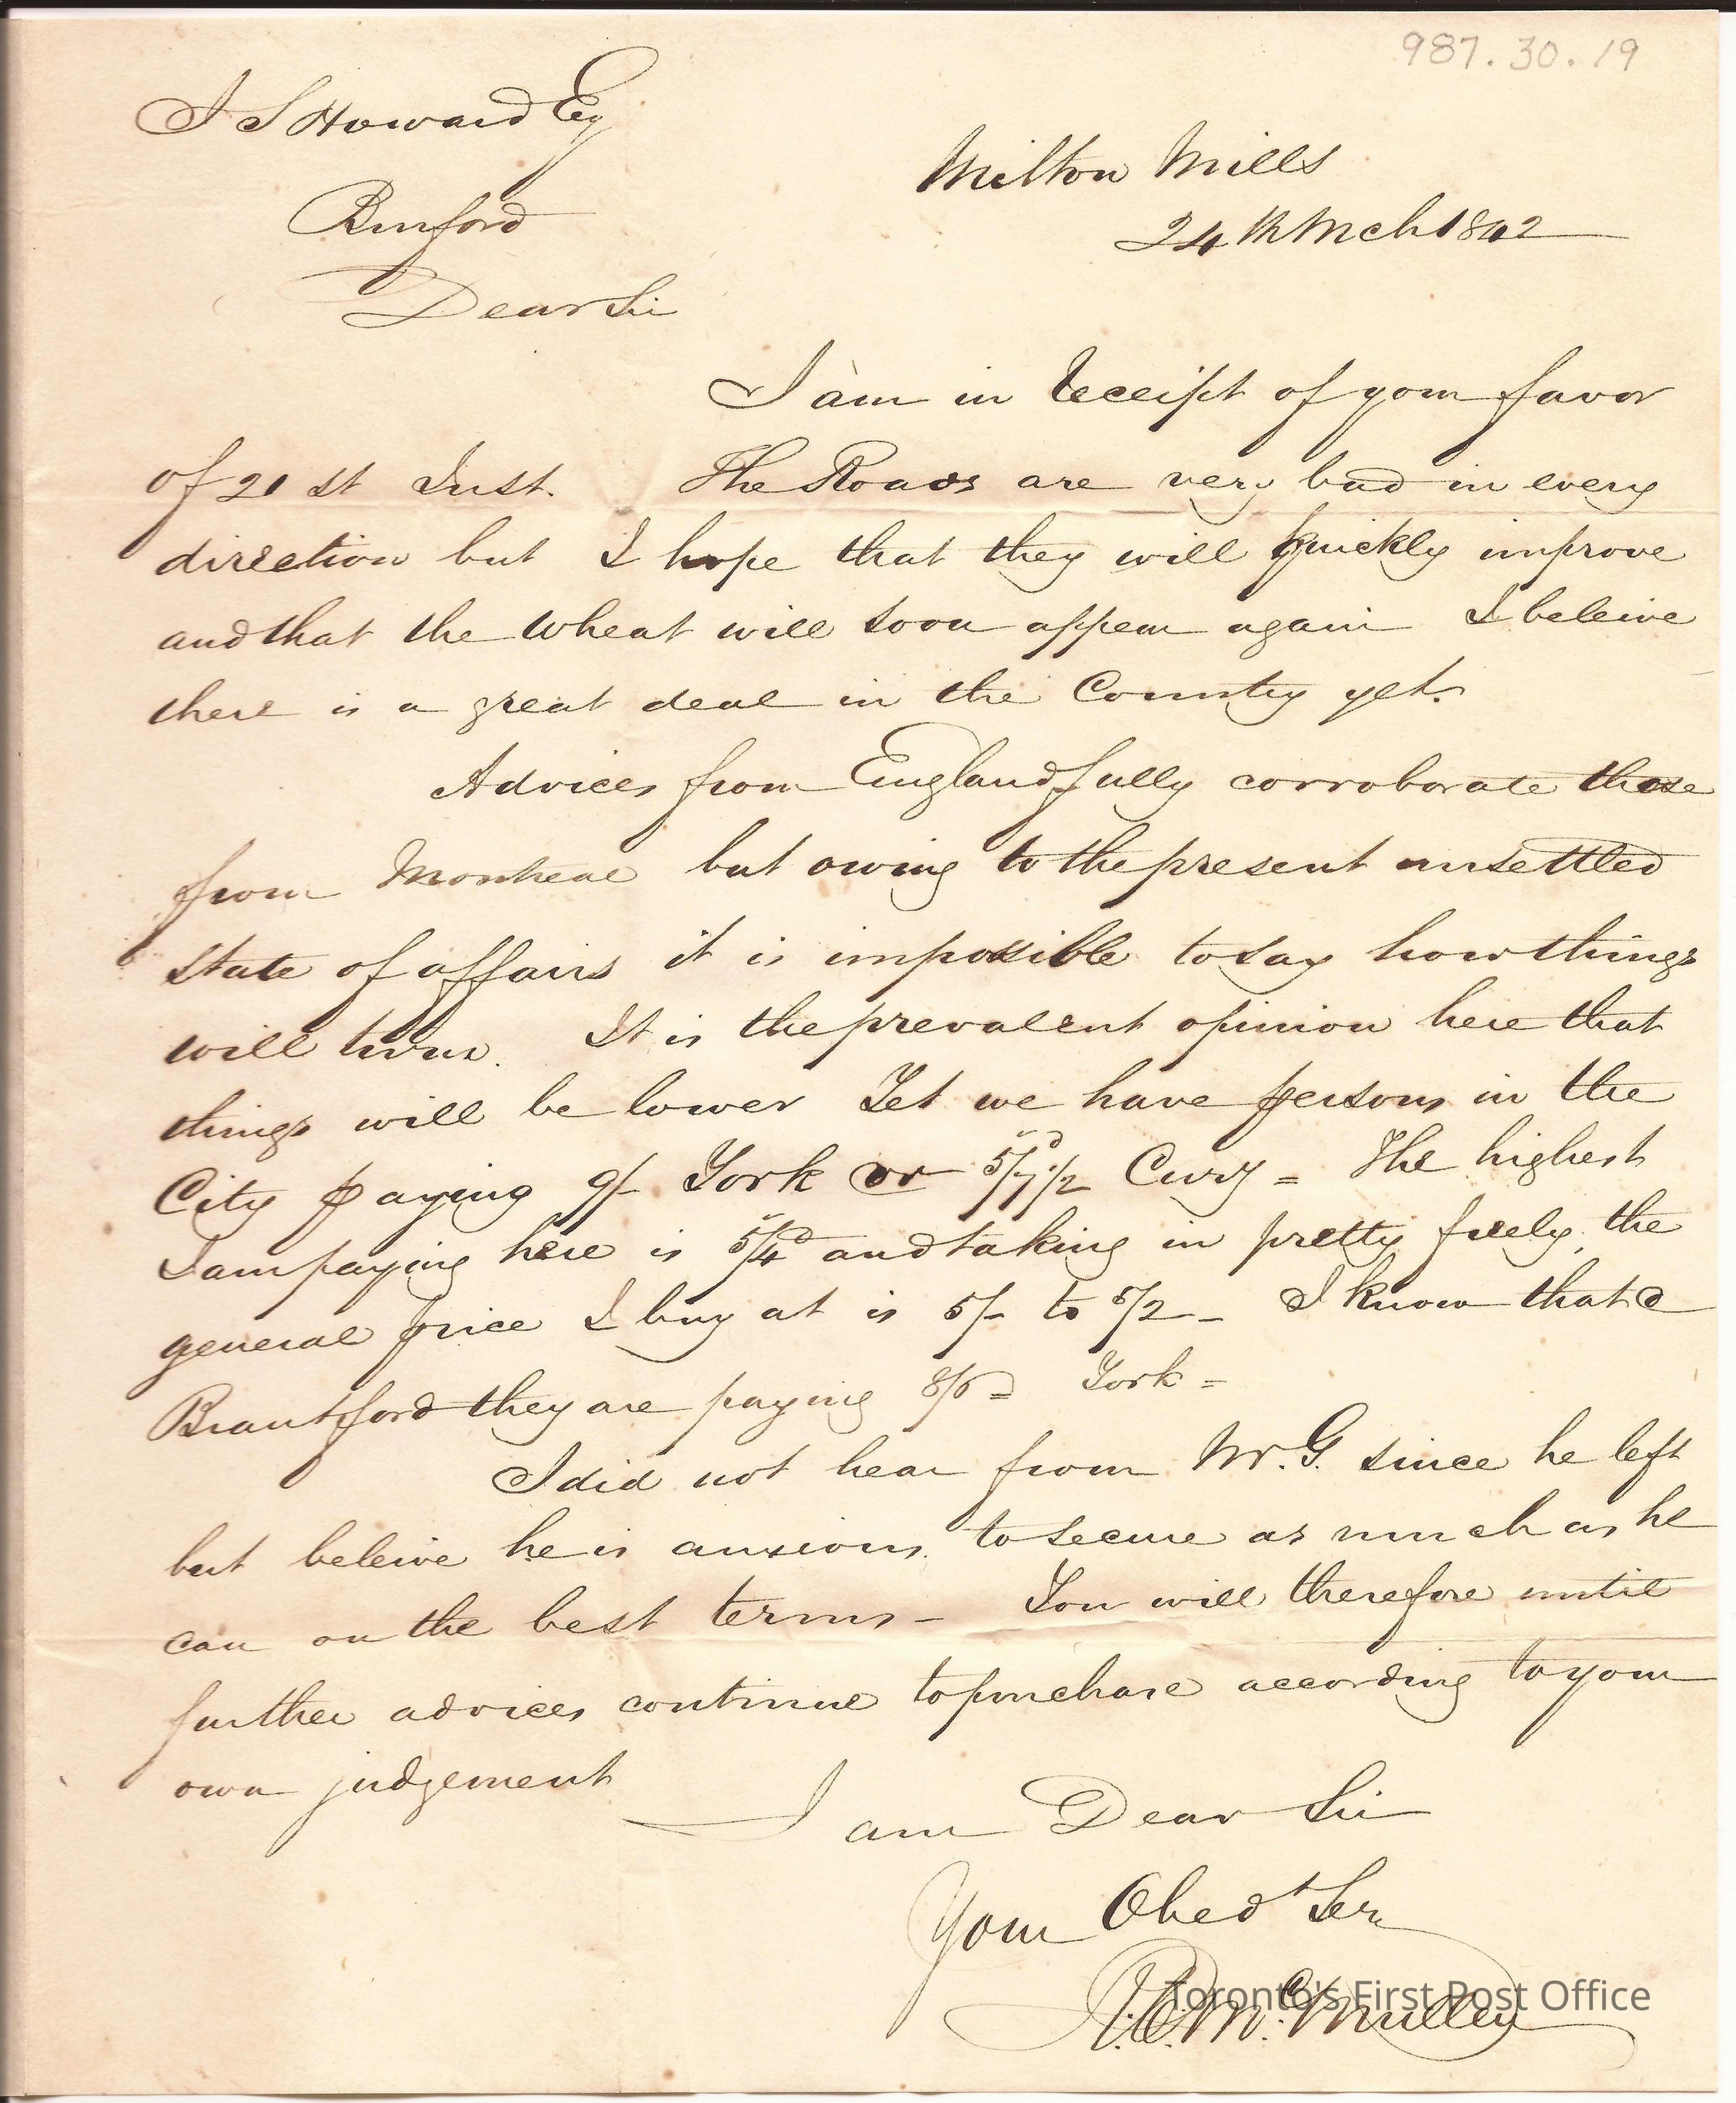 987.30.19
J S Howard Esq
Milton Mills
Burford
24th Mch 1842
Dear Sir
I am in receipt of your favor
of 21st Inst. The Roads are very bad in every
direction but I hope that they will quickly improve
and that the Wheat will soon appear again I beleive
there is a great deal in the Country yet.
Advices from England fully corroborate those
from Montreal but owing to the present unsettled
state of affairs it is impossible to say how things
will turn. It is the prevalent opinion here that
things will be lower Yet we have persons in the
City paying 9/- York or 5/7½ Curry = The highest
I am paying here is 5/4d and taking in pretty freely, the
general price I buy at is 5/- to 5/2 - I know that @
Brantford they are paying York =
I did not hear from Mr. G. since he left
but beleive he is anxious to secure as much as he
can on the best terms - You will therefore until
further advices continue to purchase according to your
own judgement
I am Dear Sir
Your Obedt Ser
McMullen
Toronto's First Post Office